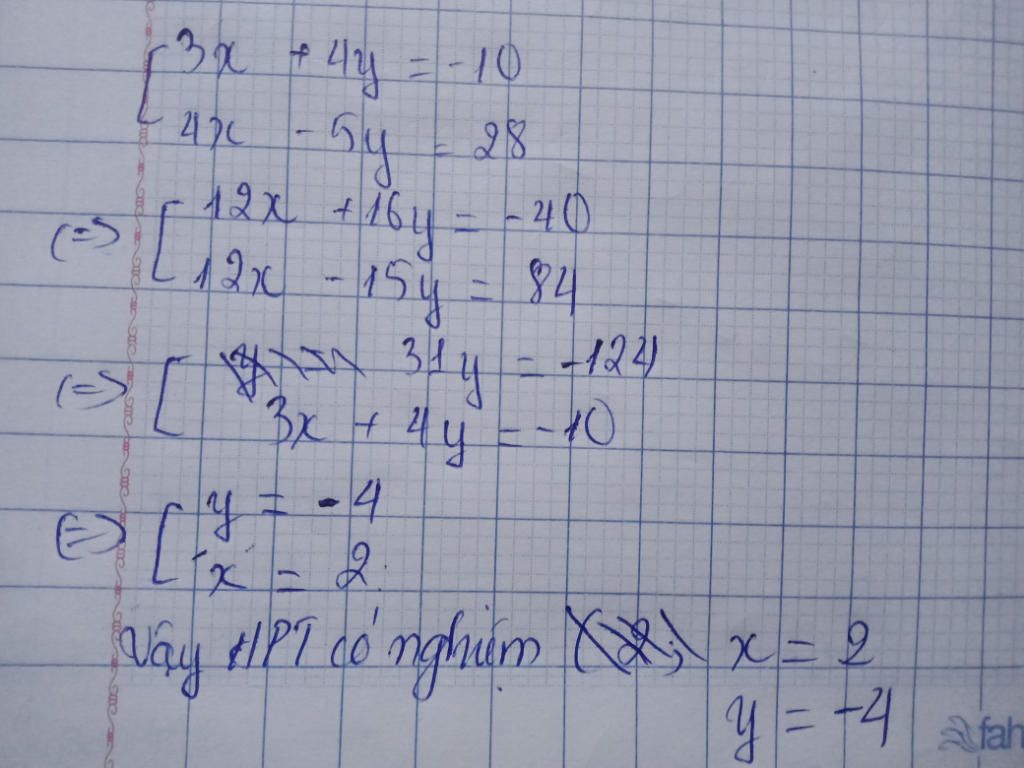 3x + 4y = -10
4x - 5y = 28
(=>) 12x + 16y = -40
12x - 15y = 84
(=>) 31y = -124
3x + 4y = -10
(=>) y = -4
x = 2
Vậy HPT có nghiệm (2; x = 2
y = -4
fah